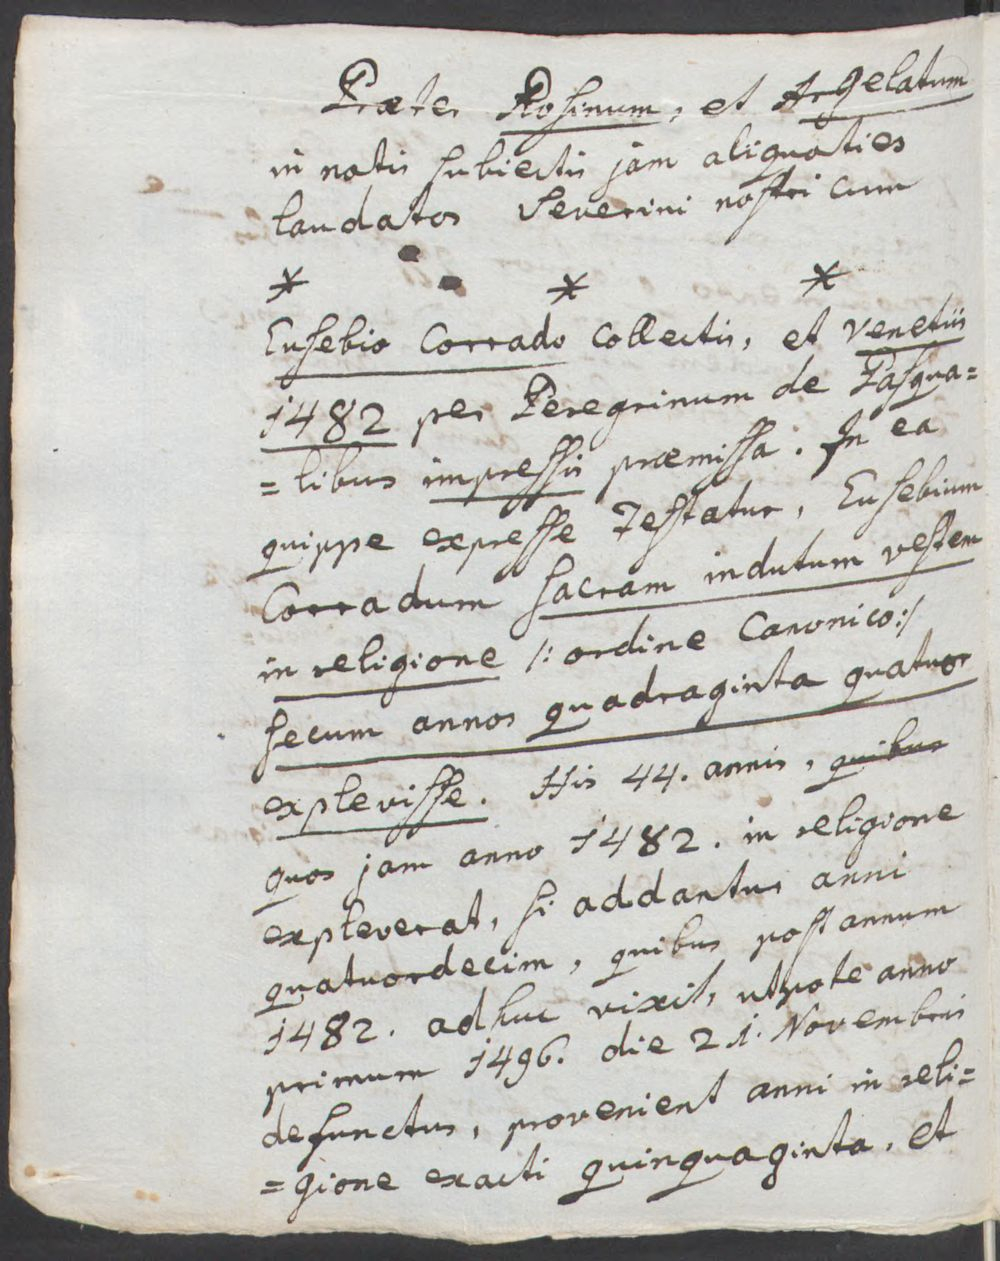 Præter Rosinum, et Argelatum
in notis subiectis jam aliquoties
laudatos Severini nostri cum
* * *
Eusebio Corrado collectis, et Venetiis
1482 per Peregrinum de Pasqua=
=libus impressis præmissa. In ea
quippe expresse Testatur, Eusebium
Corradum sacram indutum vestem
in religione /: ordine Canonico:/
secum annos quadraginta quatuor
explevisse. His 44. annis, quibus
quos jam anno 1482. in religione
expleverat, si addantur anni
quatuordecim, quibus post annum
1482. adhuc vixit, utpote anno
primum 1496. die 21. Novembris
defunctus, provenient anni in reli=
=gione exacti quinquaginta, et